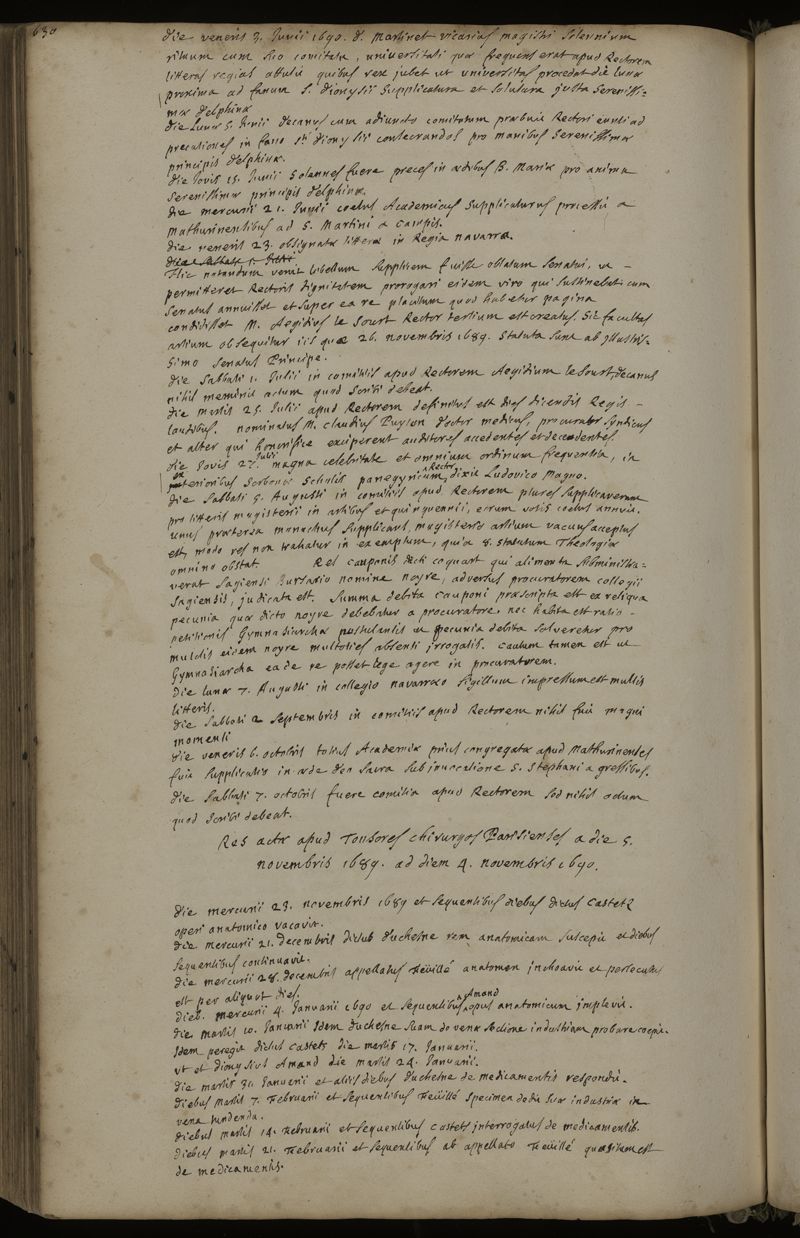 630
die veneris 3. Junii 1690. d. Martinet vicarius magistri solennium
rituum cum suo comitatu, universitati quæ frequens erat apud Rectorem
litteras regias attulit quibus rex jubet ut universitas procedat die lunæ
proxima ad fanum S. Dionysii supplicatura et solutura justa sereniss-
mæ delphinæ
die Lunæ 5. Junii decanus cum adjuncto comitatum præbuit Rectori eunti ad
precationes in fano Sti dionysii consecrandas pro manibus serenissimæ
principis delphinæ.
die Jovis 15. Junii solennes fuere preces in ædibus B. Mariæ pro anima
serenissimæ principis delphinæ.
die mercurii 21. Junii cœtus Academicus supplicaturus processit a
mathurinensibus ad S. Martini a campis.
die veneris 23. obsignatæ litteræ in Regia navarra.
die Sabbati 1. Julii
Hic notandum venit libellum supplicem fuisse oblatum senatui, ut
permitteret Rectoris dignitatem prorogari eidem viro qui sustinebat. cum
senatus annuisset et super ea re placitum quod habetur pagina
condidisset M. Aegidius le sourt Rector tertium est creatus. Sic facultas
artium obsequitur iis quæ 26. novembris 1689. statuta sunt ab illustris-
simo senatus Principe.
die sabbati 1. Julii in comitiis apud Rectorem Aegidium le sourt, decanus
nihil meminit actum quod scribi debeat.
die martis 25. Julii apud Rectorem definitus est dies dicendis Regis
laudibus. nominatus M. claudius Puylon doctor medicus, procurator syndicus
et alter qui honorifice exciperent auditores accedentes et decedentes.
die Jovis 27. Julii magna celebritate et omnium ordinum frequentia, in
exterioribus Sorbonæ scholis panegyricum Rector dixit Ludovico Magno.
die Sabbati 5. Augusti in comitiis apud Rectorem plures supplicaverunt
pro litteris magisterii in artibus et quinquennii, eorum votis cœtus annuit.
unus præterea monachus supplicans, magisterio artium vacuus acceptus
est, modo res non trahatur in exemplum, quia 8. statutum Theologiæ
omnino obstat. Res cauponis dicti coquart qui alimenta Administra-
verat sagiensi Bursario nomine noyre, adversus procuratorem collegii
sagiensis, judicata est. summa debita cauponi præscripta est ex reliqua
pecunia quæ dicto noyre debebatur a procuratore. nec habita est ratio
petitionis Gymnasiarchæ postulantis ut pecunia debita solveretur pro
mulctis eidem noyre multoties absenti irrogatis. cautum tamen est ut
Gymnasiarcha ea de re posset lege agere in procuratorem.
die lunæ 7. Augusti in collegio navarræo sigillum impressum est multis
litteris.
die Sabbati 2 septembris in comitiis apud Rectorem nihil fuit magni
momenti
die veneris 6. octobris totius Academiæ prius congregatæ apud mathurinenses
fuit supplicatio in æde deo sacra sub invocatione S. stephani a gressibus.
die Sabbati 7. octobris fuere comitia apud Rectorem sed nihil actum
quod scribi debeat.
Res actæ apud Tonsores chirurgos Parisienses a die 5.
novembris 1689. ad diem 4. novembris 1690.
die mercurii 23. novembris 1689 et sequentibus diebus dictus Castets
operi anatomico vacavit.
die mercurii 21. decembris dictus duchesne rem anatomicam suscepit et diebus
sequentibus continuavit.
die mercurii 28. decembris appellatus Feüillé anatomen inchoavit et persecutus
est per aliquot dies.
dieb. mercurii 4. Januarii 1690 et sequentibus Amand opus anatomicum implevit.
die martis 10. Januarii Idem duchesne suam de venæ sectione industriam probare coepit.
Idem peregit dictus castets die martis 17. Januarii.
ut et dionysius Amand die martis 24. Januarii.
die martis 31. Januarii et aliis diebus duchesne de medicamentis respondit.
diebus martis 7. Februarii et sequentibus Feüillé specimen dedit suæ industriæ in
vena tundenda.
diebus martis 14. Februarii et sequentibus castets interrogatus de medicamentis.
diebus martis 21. Februarii et sequentibus ab appellato Feüillé quæsitum est
de medicamentis.